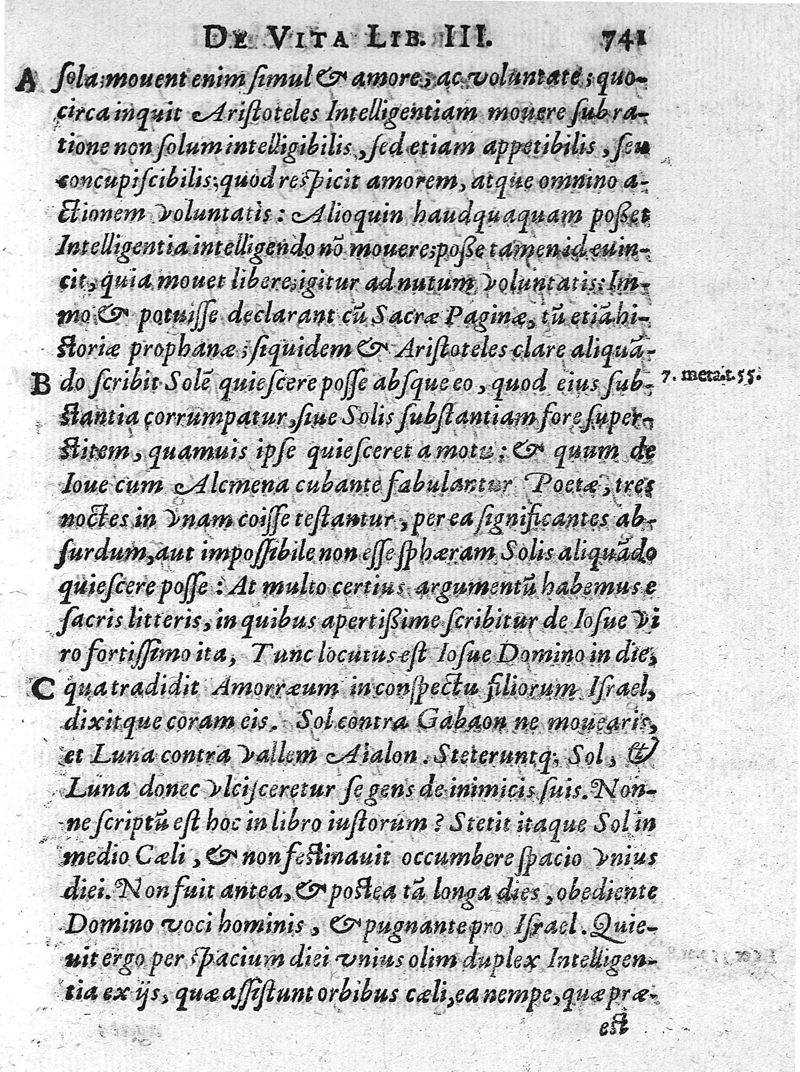 DE VITA LIB. III. 741
A ſola: mouent enim ſimul & amore, ac voluntate; quo-
circa inquit Ariſtoteles Intelligentiam mouere ſub ra-
tione non ſolum intelligibilis, ſed etiam appetibilis, ſeu
concupiſcibilis: quod reſpicit amorem, atque omnino a-
ctionem voluntatis: Alioquin haudquaquam poßet
Intelligentia intelligendo nō mouere; poße tamen id euin-
cit, quia mouet libere; igitur ad nutum voluntatis: Im-
mo & potuiſſe declarant cū Sacræ Paginæ, tū etiā hi-
ſtoriæ prophanæ; ſiquidem & Ariſtoteles clare aliquā-
B do ſcribit Solē quieſcere poſſe abſque eo, quod eius ſub-
7. meta.t.55.
ſtantia corrumpatur, ſiue Solis ſubſtantiam fore ſuper-
ſtitem, quamuis ipſe quieſceret a motu: & quum de
Ioue cum Alcmena cubante fabulantur Poetæ, tres
noctes in vnam coiſſe teſtantur, per ea ſignificantes ab-
ſurdum, aut impoſſibile non eſſe ſphæram Solis aliquādo
quieſcere poſſe: At multo certius argumentū habemus e
ſacris litteris, in quibus apertißime ſcribitur de Ioſue vi
ro fortiſſimo ita, Tunc locutus eſt Ioſue Domino in die,
C qua tradidit Amorræum in conſpectu filiorum Iſrael,
dixitque coram eis. Sol contra Gabaon ne mouearis,
et Luna contra vallem Aialon. Steteruntq; Sol, &
Luna donec vlciſceretur ſe gens de inimicis ſuis. Non-
ne ſcriptū eſt hoc in libro iuſtorum? Stetit itaque Sol in
medio Cæli, & non feſtinauit occumbere ſpacio vnius
diei. Non fuit antea, & poſtea tā longa dies, obediente
Domino voci hominis, & pugnante pro Iſrael. Quie-
uit ergo per ſpacium diei vnius olim duplex Intelligen-
tia ex ijs, quæ aſſiſtunt orbibus cæli, ea nempe, quæ præ-
eſt